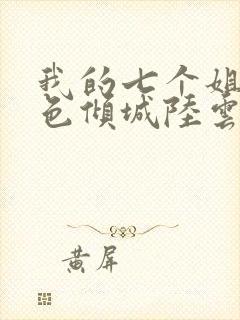 我的七个姐
色倾城陸雲
黄屏